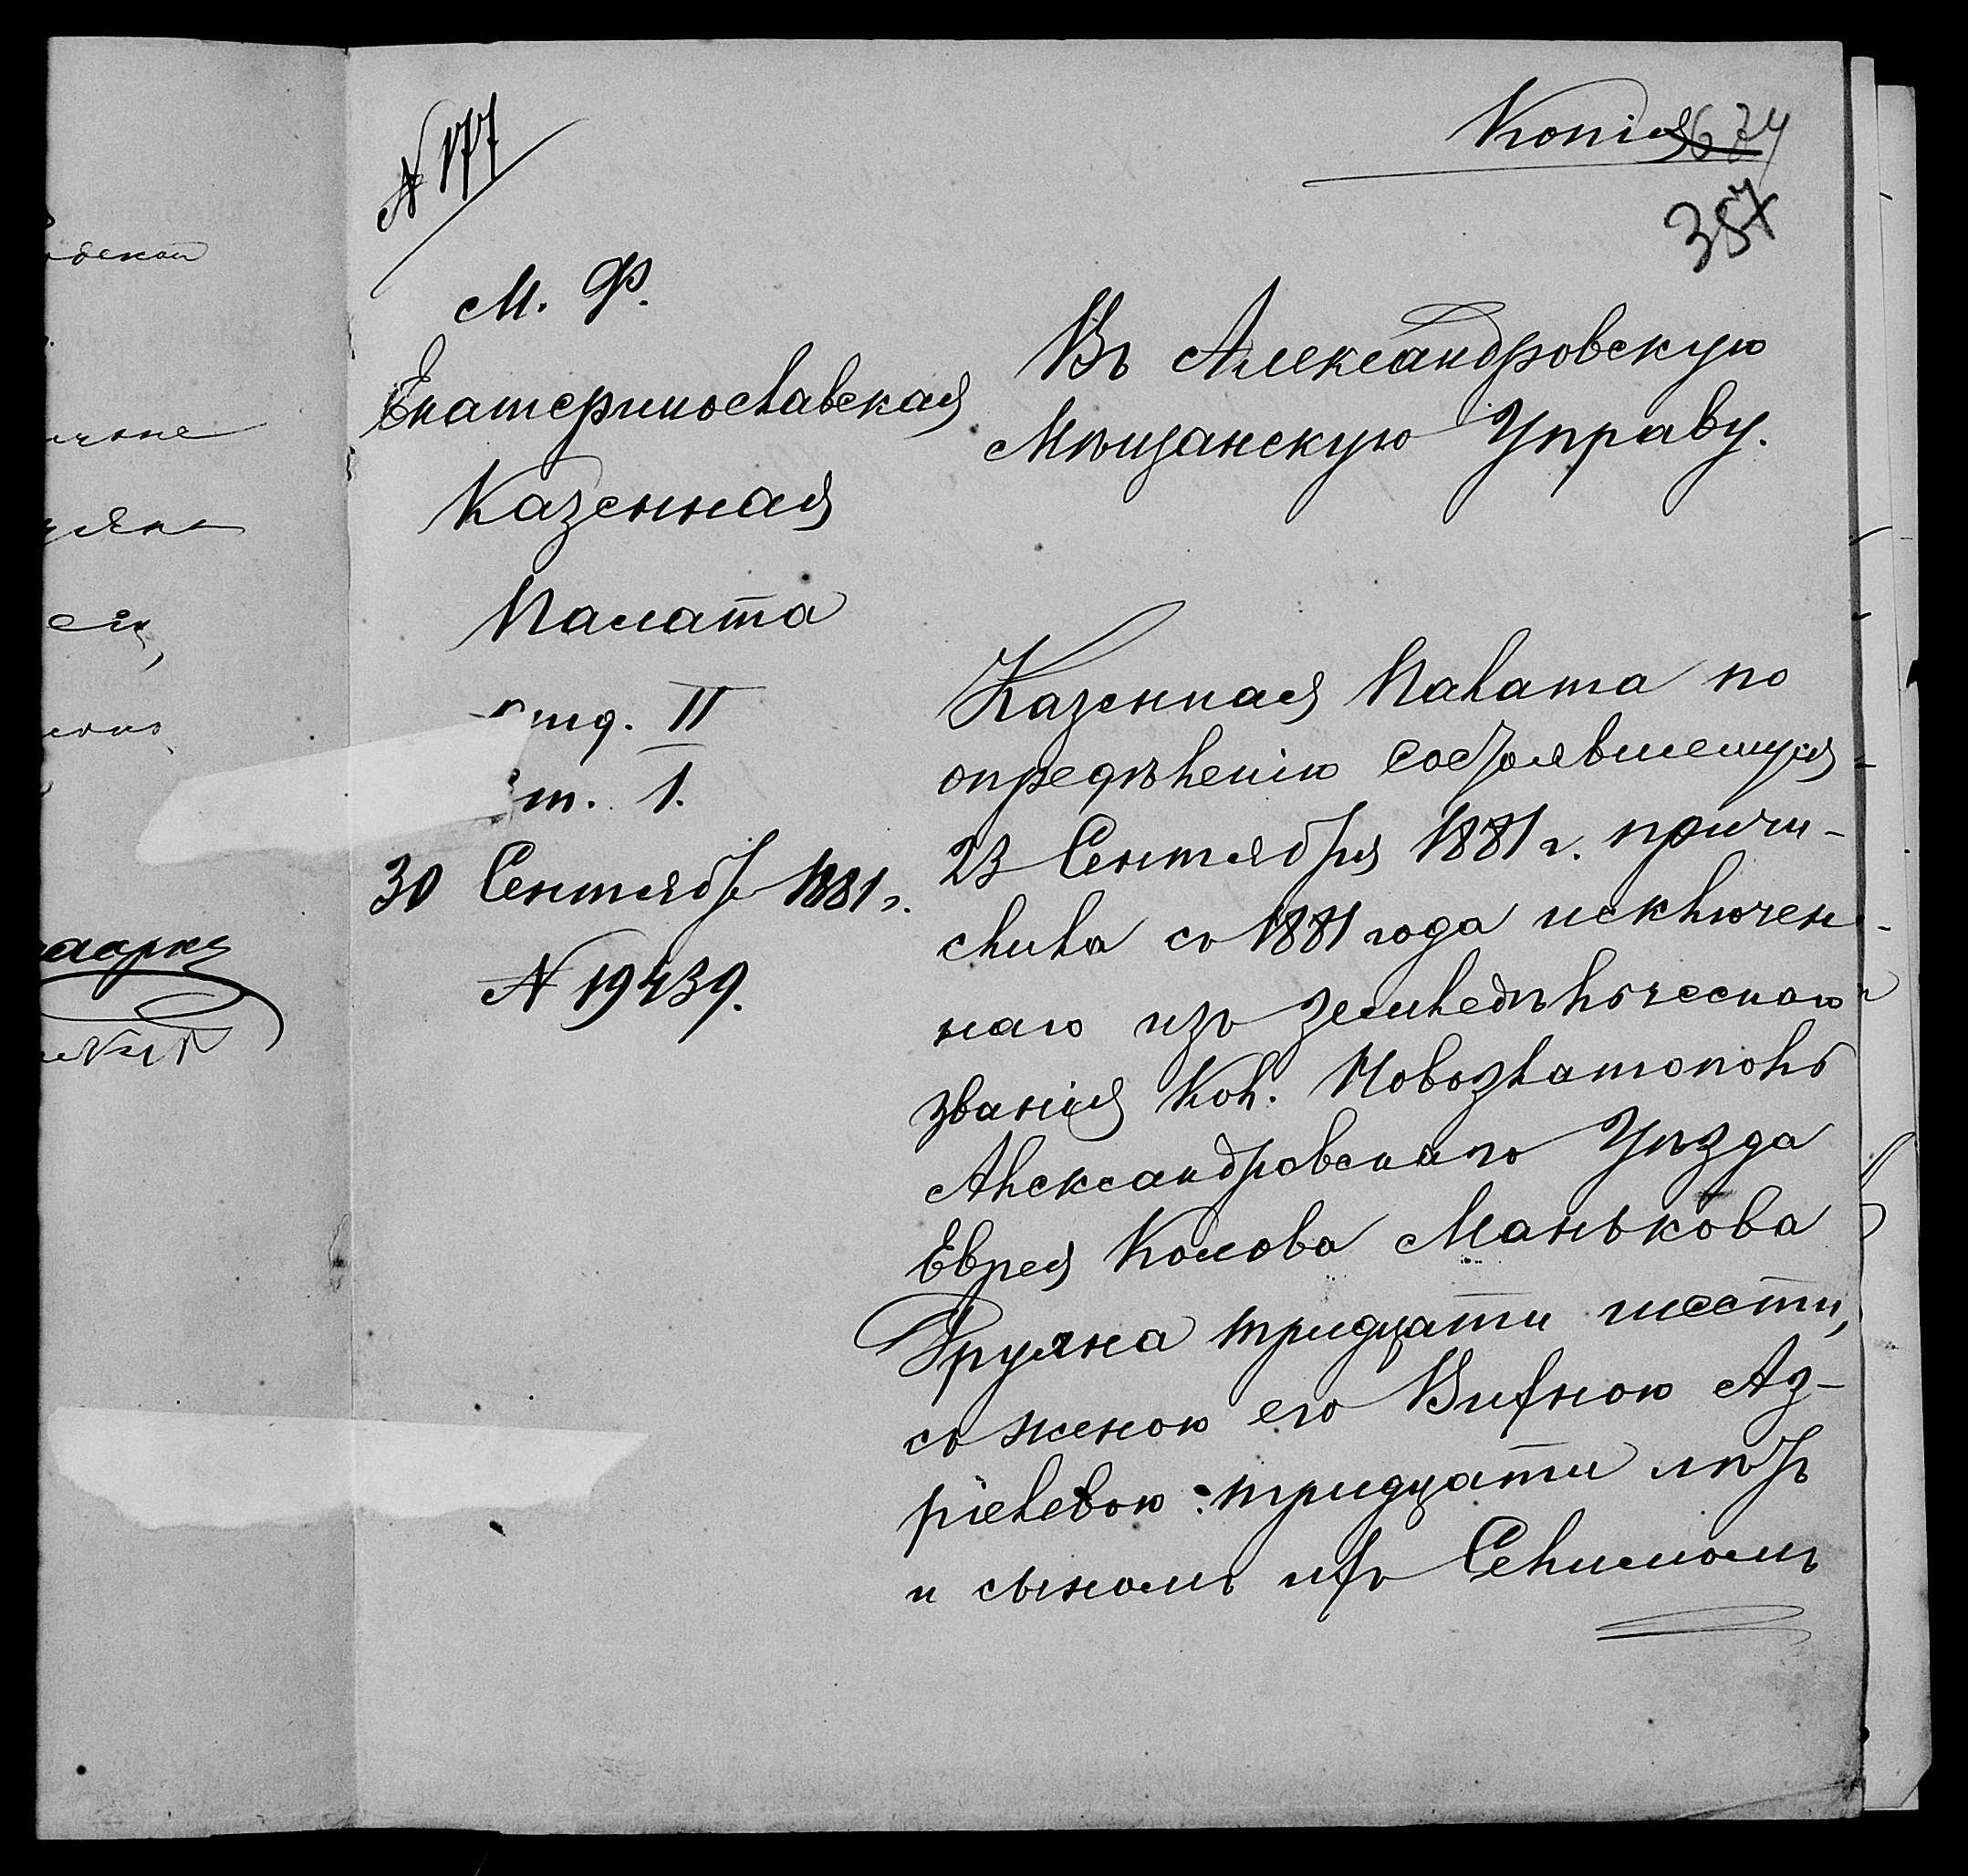 N 177
Копія
674
387
М. Ф.
Екатеринославская
Казенная
Палата
отд. II
ст. 1.
30 Сентябр 1881 г.
N 19439.
Въ Александровскую
Мѣщанскую Управу.
Казенная Палата по
опредѣленію состоявшемуся
23 Сентября 1881 г. причи-
слила съ 1881 года исключен-
наго изъ земледѣльческаго
званія Кол. Новозлатополь
Александровскаго Уѣзда
Еврея Манькова
тридцати шести,
съ женою его Вихною Аз-
ріелевою тридцати лѣтъ
и сыномъ ихъ Селимомъ